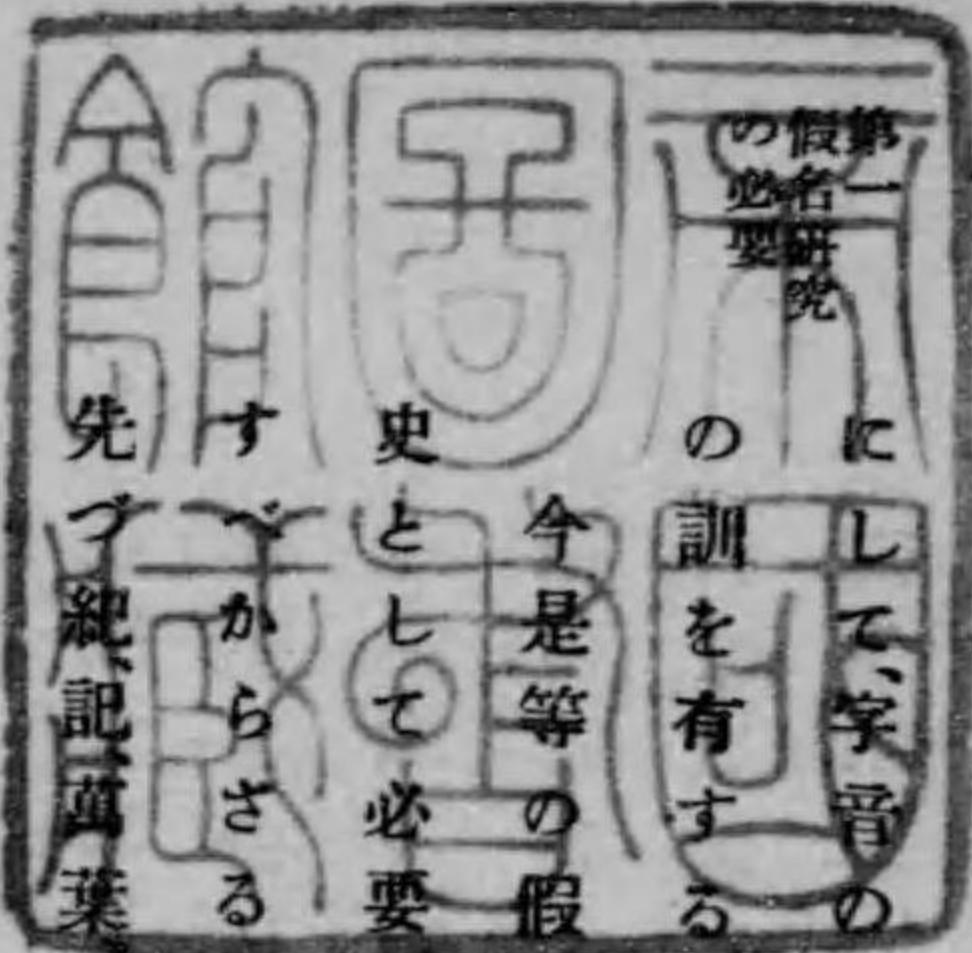 第一
假名研究
の必要
にして、字音の
の訓を有する
今是等の假
史として必要
すべからざる
先づ紀、記、萬葉、